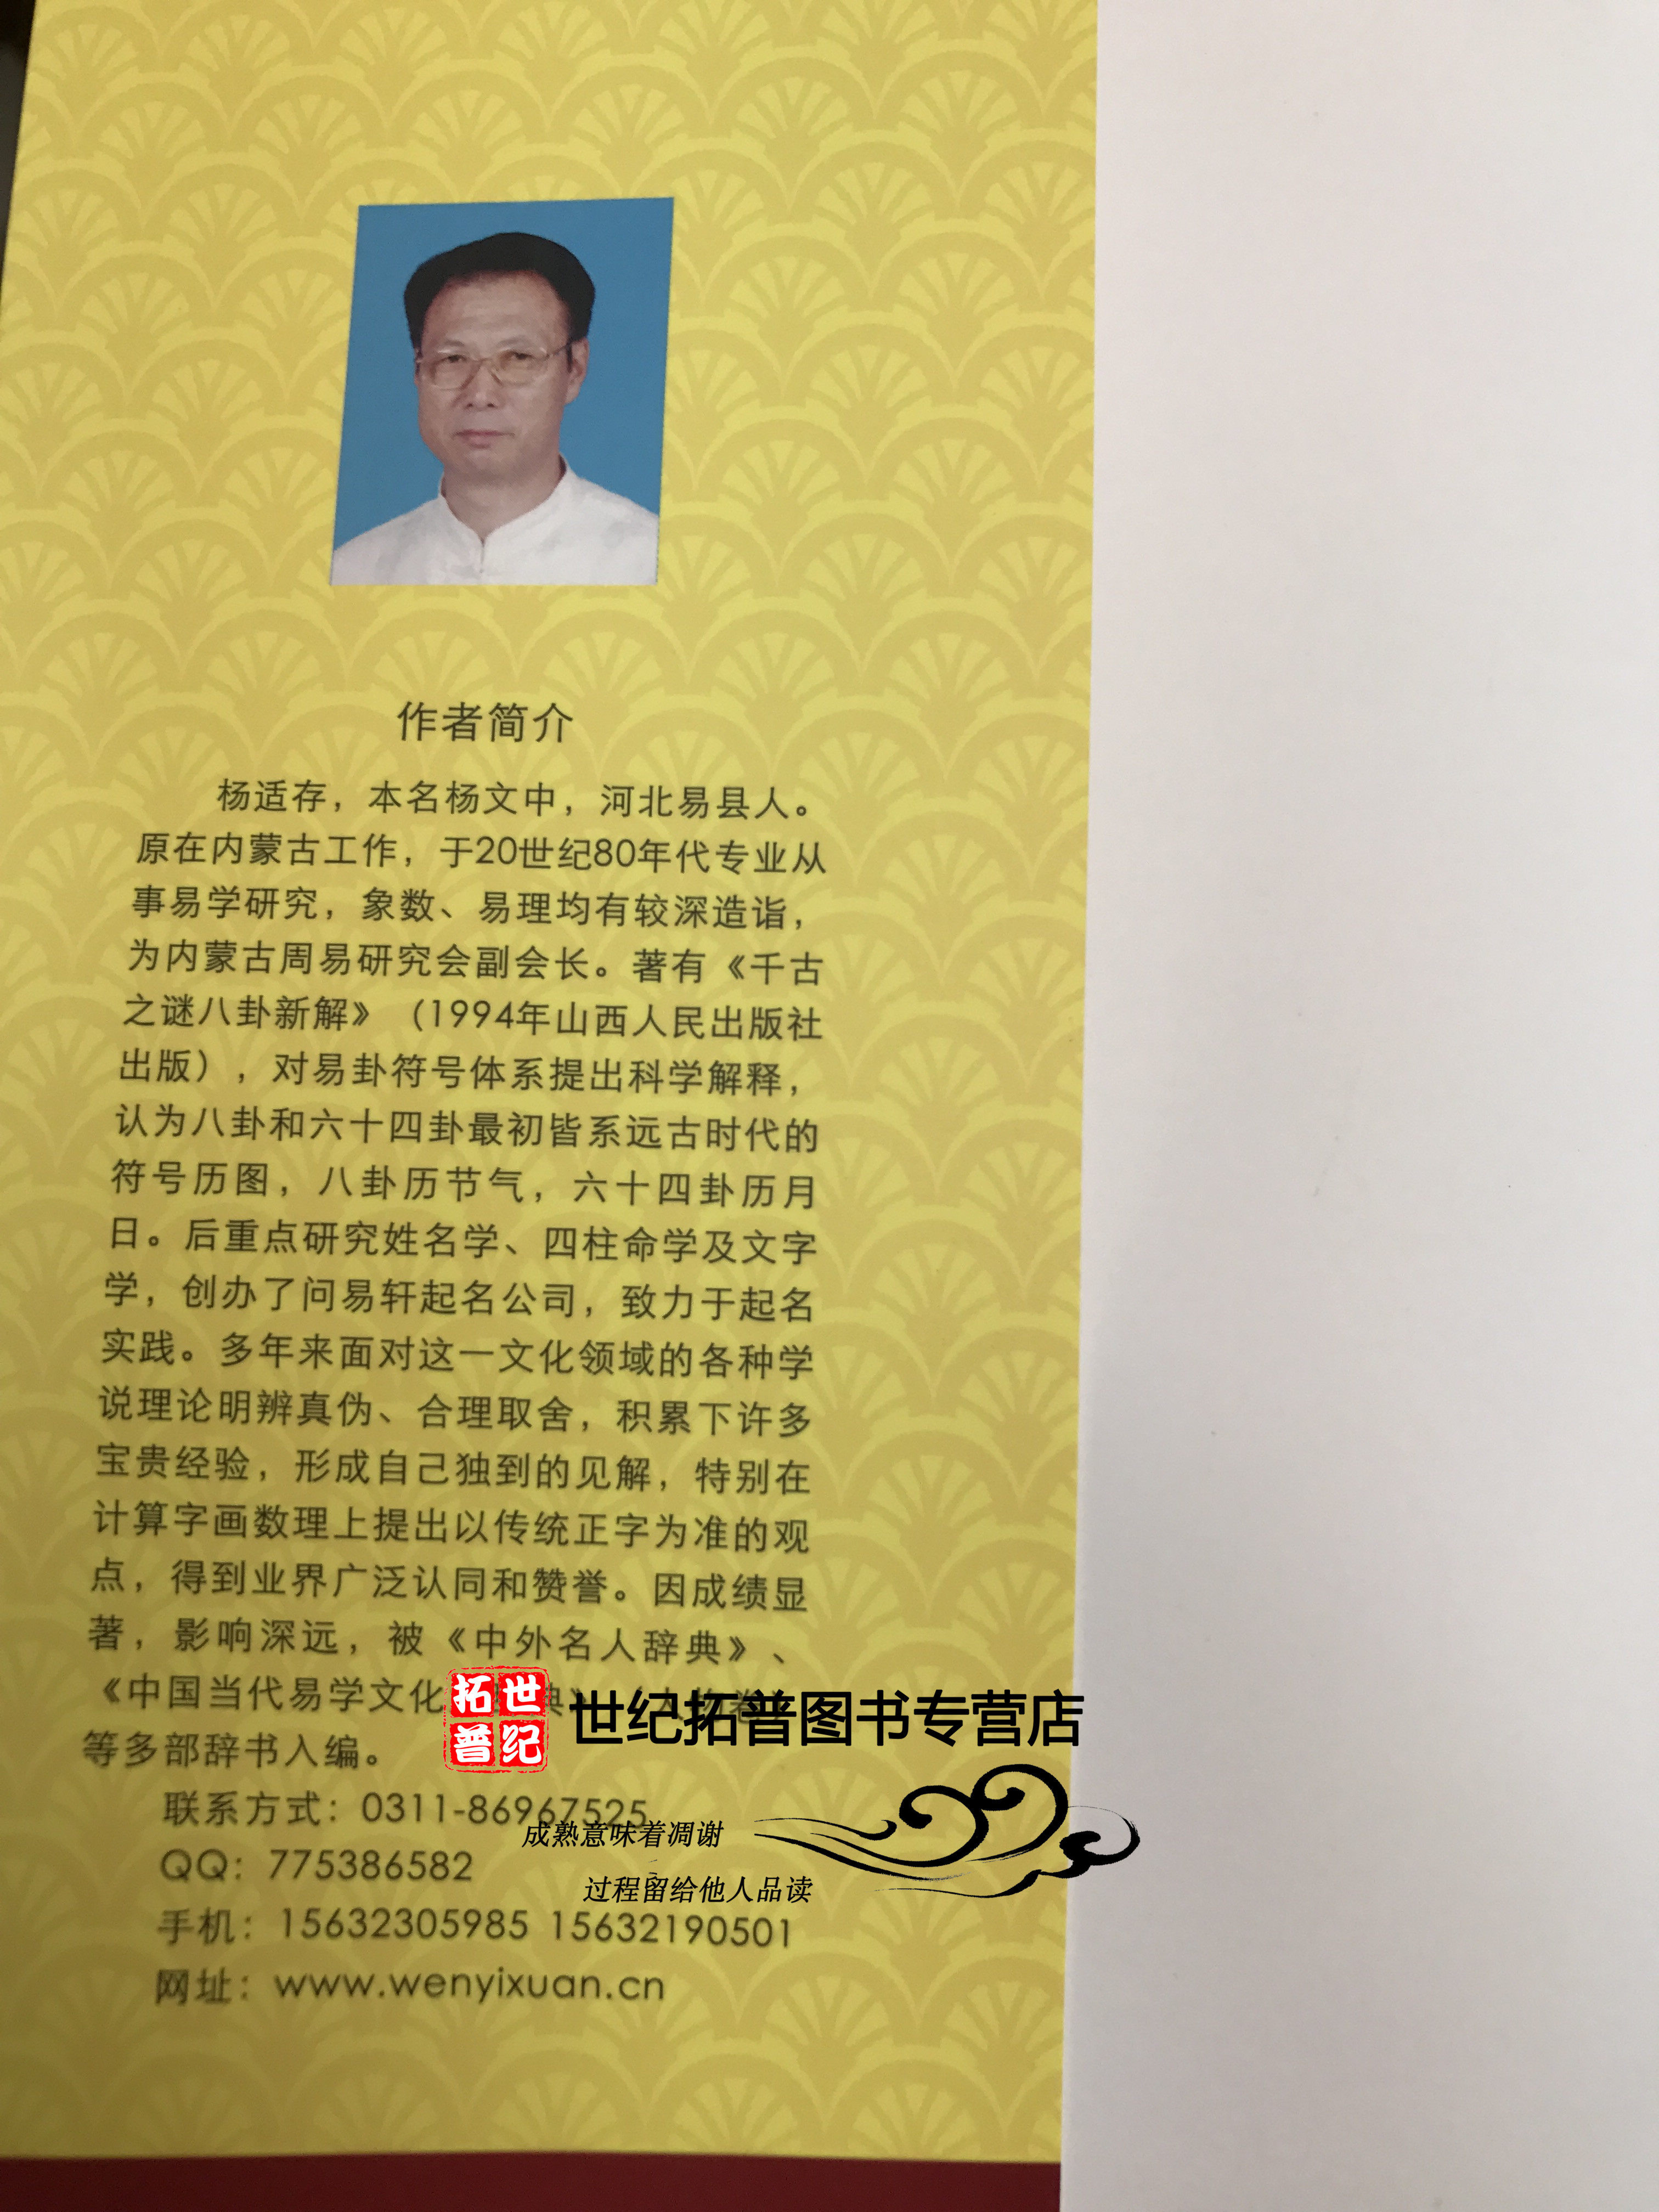 作者简介
杨适存，本名杨文中，河北易县人。
原在内蒙古工作，于20世纪80年代专业从
事易学研究，象数、易理均有较深造诣，
为内蒙古周易研究会副会长。著有《千古
之谜八卦新解》（1994年山西人民出版社
出版），对易卦符号体系提出科学解释，
认为八卦和六十四卦最初皆系远古时代的
符号历图，八卦历节气，六十四卦历月
日。后重点研究姓名学、四柱命学及文字
学，创办了问易轩起名公司，致力于起名
实践。多年来面对这一文化领域的各种学
说理论明辨真伪、合理取舍，积累下许多
宝贵经验，形成自己独到的见解，特别在
计算字画数理上提出以传统正字为准的观
点，得到业界广泛认同和赞誉。因成绩显
著，影响深远，被《中外名人辞典》、
《中国当代易学文化
等多部辞书入编。
世纪拓普
世纪拓普图书专营店
联系方式：0311-86967525
成熟意味着凋谢
QQ：775386582
过程留给他人品读
手机：15632305985 15632190501
网址：www.wenyixuan.cn